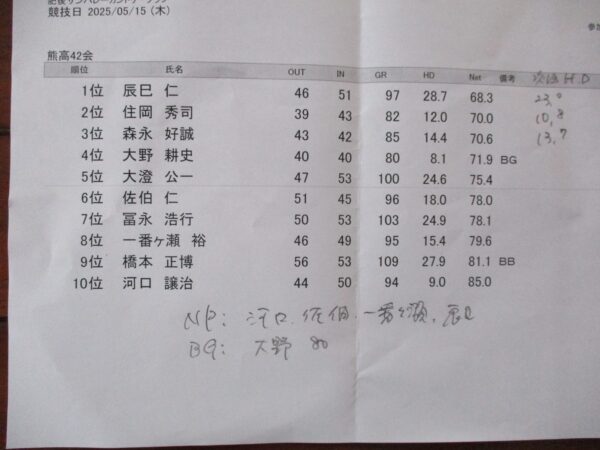 競技日 2025/05/15 (木)
熊高42会
順位 氏名 OUT IN GR HD Net 備考 次回HD
1位 辰巳 仁 46 51 97 28.7 68.3 23.0
2位 住岡 秀司 39 43 82 12.0 70.0 10.8
3位 森永 好誠 43 42 85 14.4 70.6 13.7
4位 大野 耕史 40 40 80 8.1 71.9 BG
5位 大澄 公一 47 53 100 24.6 75.4
6位 佐伯 仁 51 45 96 18.0 78.0
7位 冨永 浩行 50 53 103 24.9 78.1
8位 一番ヶ瀬 裕 46 49 95 15.4 79.6
9位 橋本 正博 56 53 109 27.9 81.1 BB
10位 河口 譲治 44 50 94 9.0 85.0
NP: 河口, 佐伯, 一番ヶ瀬, 辰巳
BG: 大野 80